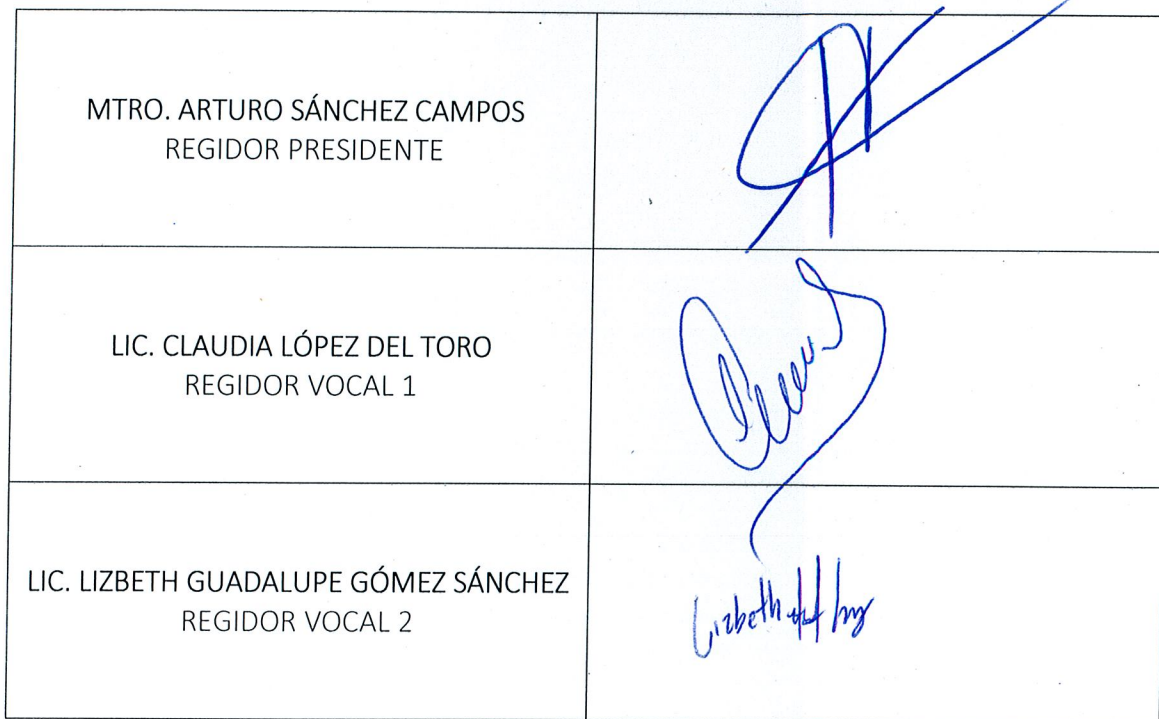 MTRO. ARTURO SÁNCHEZ CAMPOS
REGIDOR PRESIDENTE
LIC. CLAUDIA LÓPEZ DEL TORO
REGIDOR VOCAL 1
LIC. LIZBETH GUADALUPE GÓMEZ SÁNCHEZ
REGIDOR VOCAL 2
Lizbeth